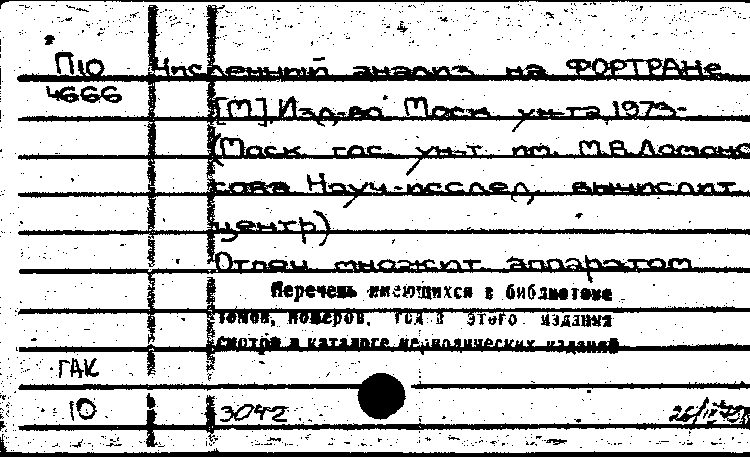 П10 Численный анализ на ФОРТРАНе
4666 [М] Изд-во Моск. ун-та, 1973-
(Моск. гос. ун-т им. М.В. Ломоно
сова Науч.-исслед. вычислит.
центр)
Отпеч. множит. аппаратом
Перечень имеющихся в библиотеке
томов, номеров, года этого издания
смотри в каталоге периодических изданий
ГАК
10 3042